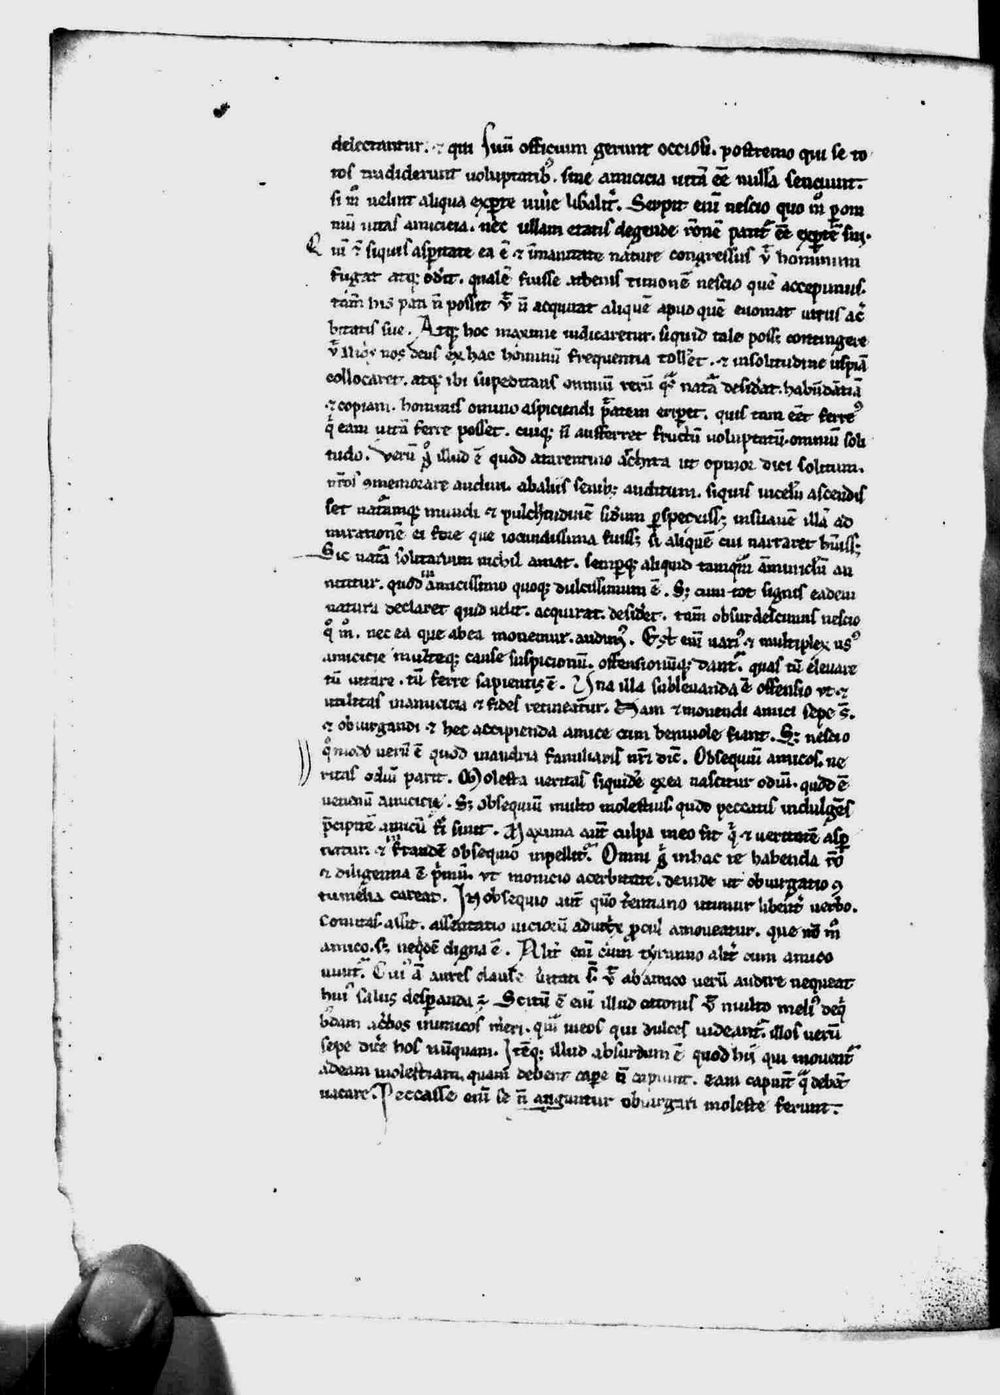 delectantur. ⁊ qui suū officium gerunt occiosi. postremo qui se to
tos tradiderunt uoluptatibꝰ. sine amicicia uitā eē nullā senciunt.
si mͦ uelint aliqua exꝑte uiuͤe libalit᷑. Serpit eni᷑ nescio quo mͦ ꝑ om
niū uitas amicicia. nec ullam etatis degende rōnem patit᷑ eē exꝑtē sui.
Quī ⁊ siquis asꝑitate ea ē ⁊ īmanitate nature congressus ut hominum
fugat atqꝫ oderit. qualē fuisse athenis timonē nescio quē accepimus.
tam̄ his pati n̄ possit ut n̄ acquirat aliquē apud quē euomat uirus ac̄
bitatis sue. Atqꝫ hoc maxime iudicaretur. siquid tale possꝫ contingere
ut aliqͦs nos deus ex hac hominū frequentia tolleret. ⁊ in solitudine uspiā
collocaret. atqꝫ ibi supeditans omniū rerū qͣs natā desiderat. habūdātiā
⁊ copiam. hominis omnino aspiciendi p̄tatem eriperet. quis tam eēt ferreꝰ
qͥ eam uitā ferre posset. cuiqꝫ n̄ aufferret fructū uoluptatū omniū soli
tudo. Verū gͦ illud ē quod a tarentino achita ut opinor dici solitum.
nr̄os ꝯmemorare audiui. ab aliis senibꝫ auditum. siquis in celū ascendis
set natāmqꝫ mundi ⁊ pulchritudinē sidum ꝑspexissꝫ insuauē illā ad
mirationē ei fore que iocundissima fuissꝫ si aliquē cui narraret hūissꝫ
Sic natā solitarium nichil amat. semꝑqꝫ aliquid tamquā amīniclū an
nititur. quod in amicissimo quoqꝫ dulcissimum ē. Sꝫ cum tot signis eadem
natura declaret quid uelit. acquirat. desideret. tam̄ obsurdescimus nescio
qͦ mͦ. nec ea que ab ea monemur. audimꝰ. Est eni᷑ uariꝰ ⁊ multiplex usꝰ
amicicie multeqꝫ cause suspicionū. offensionūqꝫ dant᷑. quas tū eleuare
tū uitare. tū ferre sapientis ē. Una illa subleuanda ē offensio ut ⁊
utilitas in amicicia ⁊ fides retineatur. Nam ⁊ monendi amici sepe s̄.
⁊ obiurgandi ⁊ hec accipienda amice cum beniuole fiunt. Sꝫ nescio
qͦmodo uerū ē quod in andria familiaris nr̄i dic̄. Obsequiū amicos. ue
ritas odiū parit. Molesta ueritas siquidē ex ea nascitur odiū. quod ē
uenenū amicicie. Sꝫ obsequiū multo molestius quod peccatis indulgēs
p̄cipitē amicū fͥ sinit. Maxima aut̄ culpa in eo fit qͥ ⁊ ueritatē asꝑ
natur. ⁊ in fraudē obsequio inpellit᷑. Omni gͦ in hac re habenda rō
⁊ diligentia ē pͥmū. ut monicio acerbitate. deinde ut obiurgatio ꝯ
tumelia careat. In obsequio aut̄ quō terenciano utimur libent᷑ uerbo.
comitas assit. assentatio uicioꝝ adiutrix procul amoueatur. que nō mͦ
amico. sꝫ neqꝫ dē digna ē. Alit᷑ eni᷑ cum tyranno alit᷑ cum amico
uiuit᷑. Cuiꝰ aū aures clause ueritati s̄. ut ab amico uerū audire nequeat
huiꝰ salus desꝑanda ē. Scitū ē eni᷑ illud catonis ut multo meliꝰ deqͥ
bꝰdam acbos inimicos mereri. quā meos qui dulces uideant᷑. illos uerū
sepe dicͤe hos nūquam. Itēqꝫ illud absurdum ē quod hii qui monent᷑
ad eam molestiam. quam debent capere n̄ capiunt. eam capiūt qͣ debēt
uacare. Peccasse eni᷑ se n̄ anguntur obiurgari moleste ferunt.